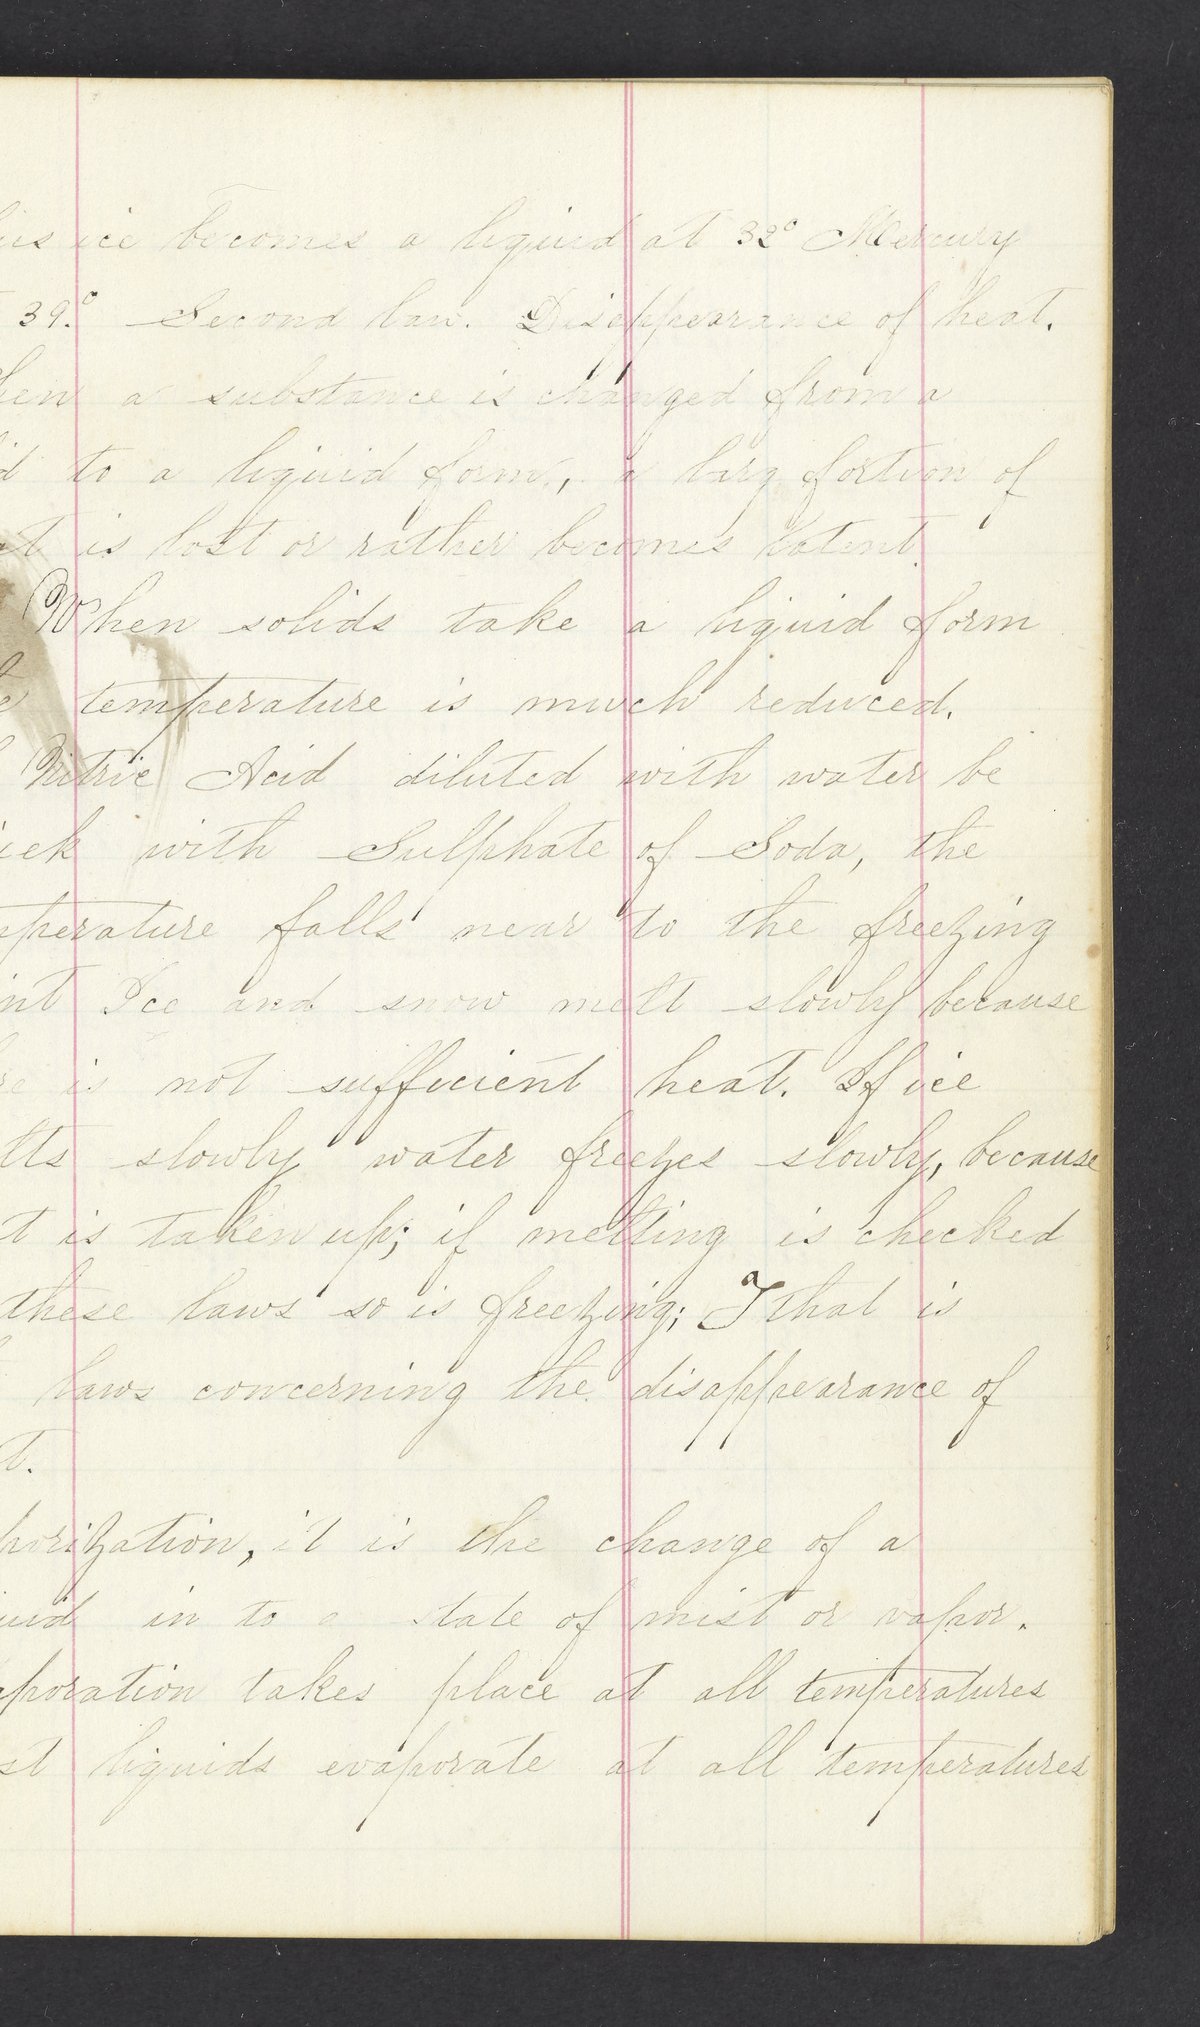 ice becomes a liquid at 32° Mercury
39.° Second law. Disappearance of heat.
hen a substance is changed from a
d to a liquid form, a larg portion of
at is lost or rather becomes latent.
When solids take a liquid form
e temperature is much reduced.
Nitric Acid diluted with water be
ick with Sulphate of Soda, the
perature falls near to the freezing
nt Ice and snow melt slowly because
re is not sufficient heat. If ice
lts slowly water freezes slowly, because
t is taken up; if melting is checked
these laws so is freezing; I that is
laws concerning the disappearance of
t.
porization, it is the change of a
uid in to a state of mist or vapor.
aporation takes place at all temperatures
st liquids evaporate at all temperatures